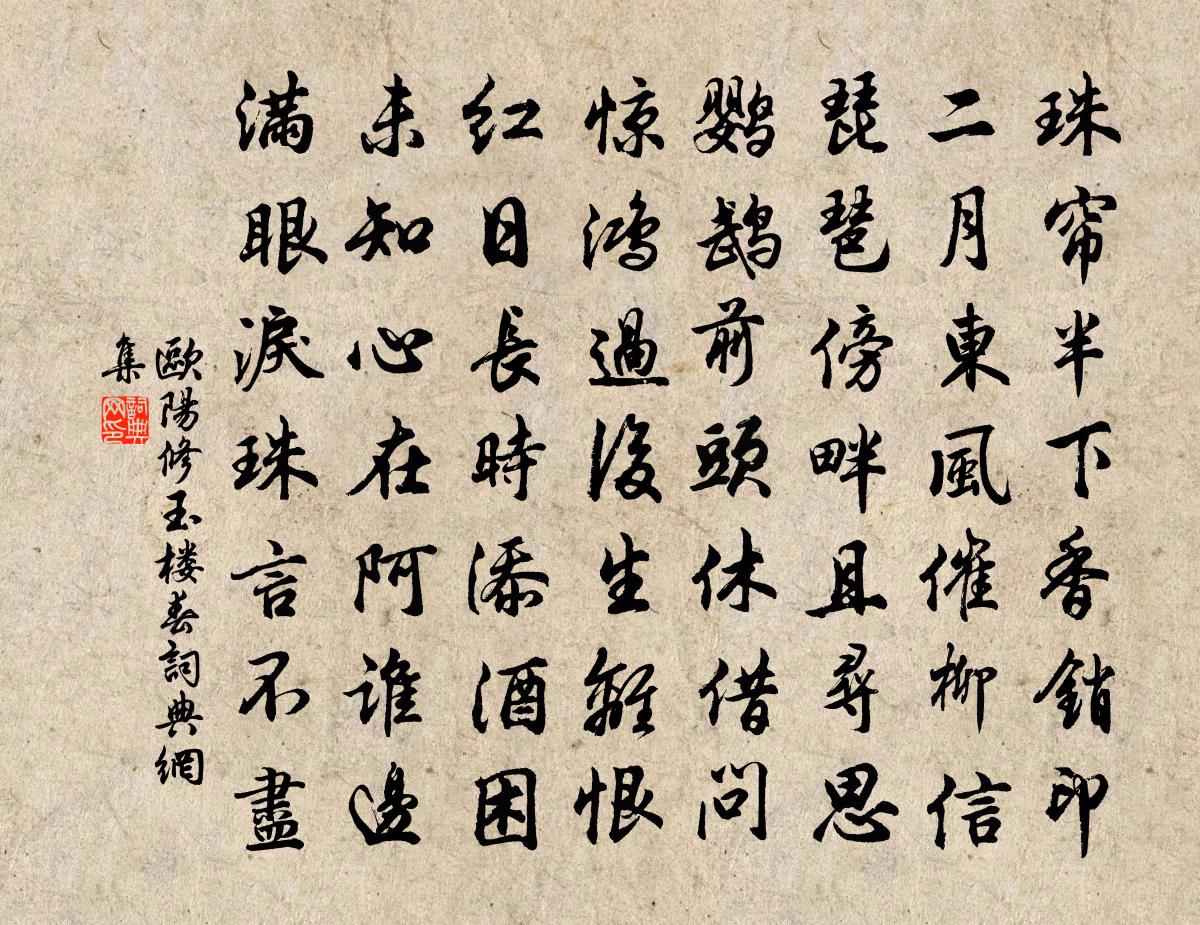 珠帘半下香銷印
二月東風催柳信
琵琶傍畔且尋思
鹦鹉前頭休借問
惊鸿過後生離恨
紅日長時添酒困
未知心在阿誰邊
滿眼淚珠言不盡
歐陽修玉楼春詞典網
集
詞典网印